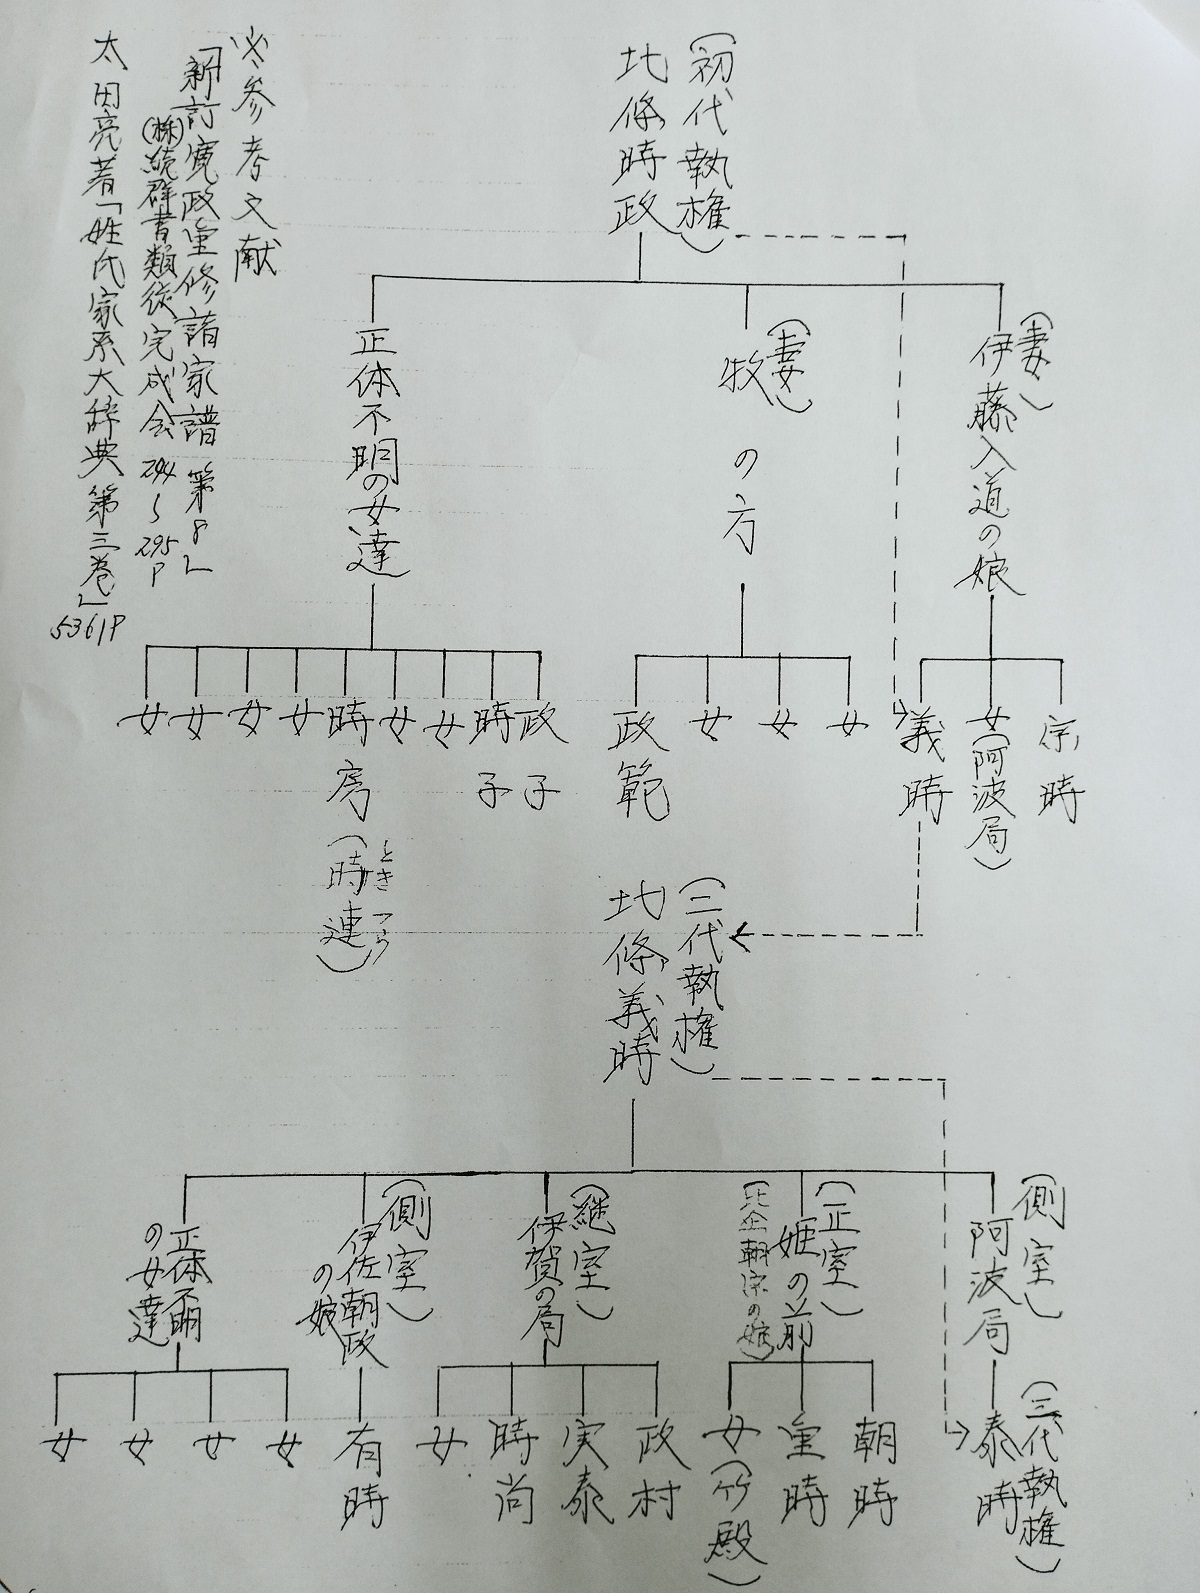 （初代執権）
北條時政
（妻）
伊藤入道の娘
（妻）
牧の方
正体不明の女達
宗時
女（阿波局）
義時
女
女
女
政範
政子
時子
女
女
時房（時連）
ときつら
女
女
女
女
（二代執権）
北條義時
（側室）
阿波局
（正室）
姫の前
（比企朝宗の娘）
（継室）
伊賀の局
（側室）
伊佐朝政
の娘
正体不明
の女達
（三代執権）
泰時
朝時
重時
女（竹殿）
政村
実泰
時尚
女
有時
女
女
女
女
※参考文献
「新訂寛政重修諸家譜 第8」
（株）続群書類従完成会 294〜295P
太田亮著「姓氏家系大辞典 第三巻」5361P